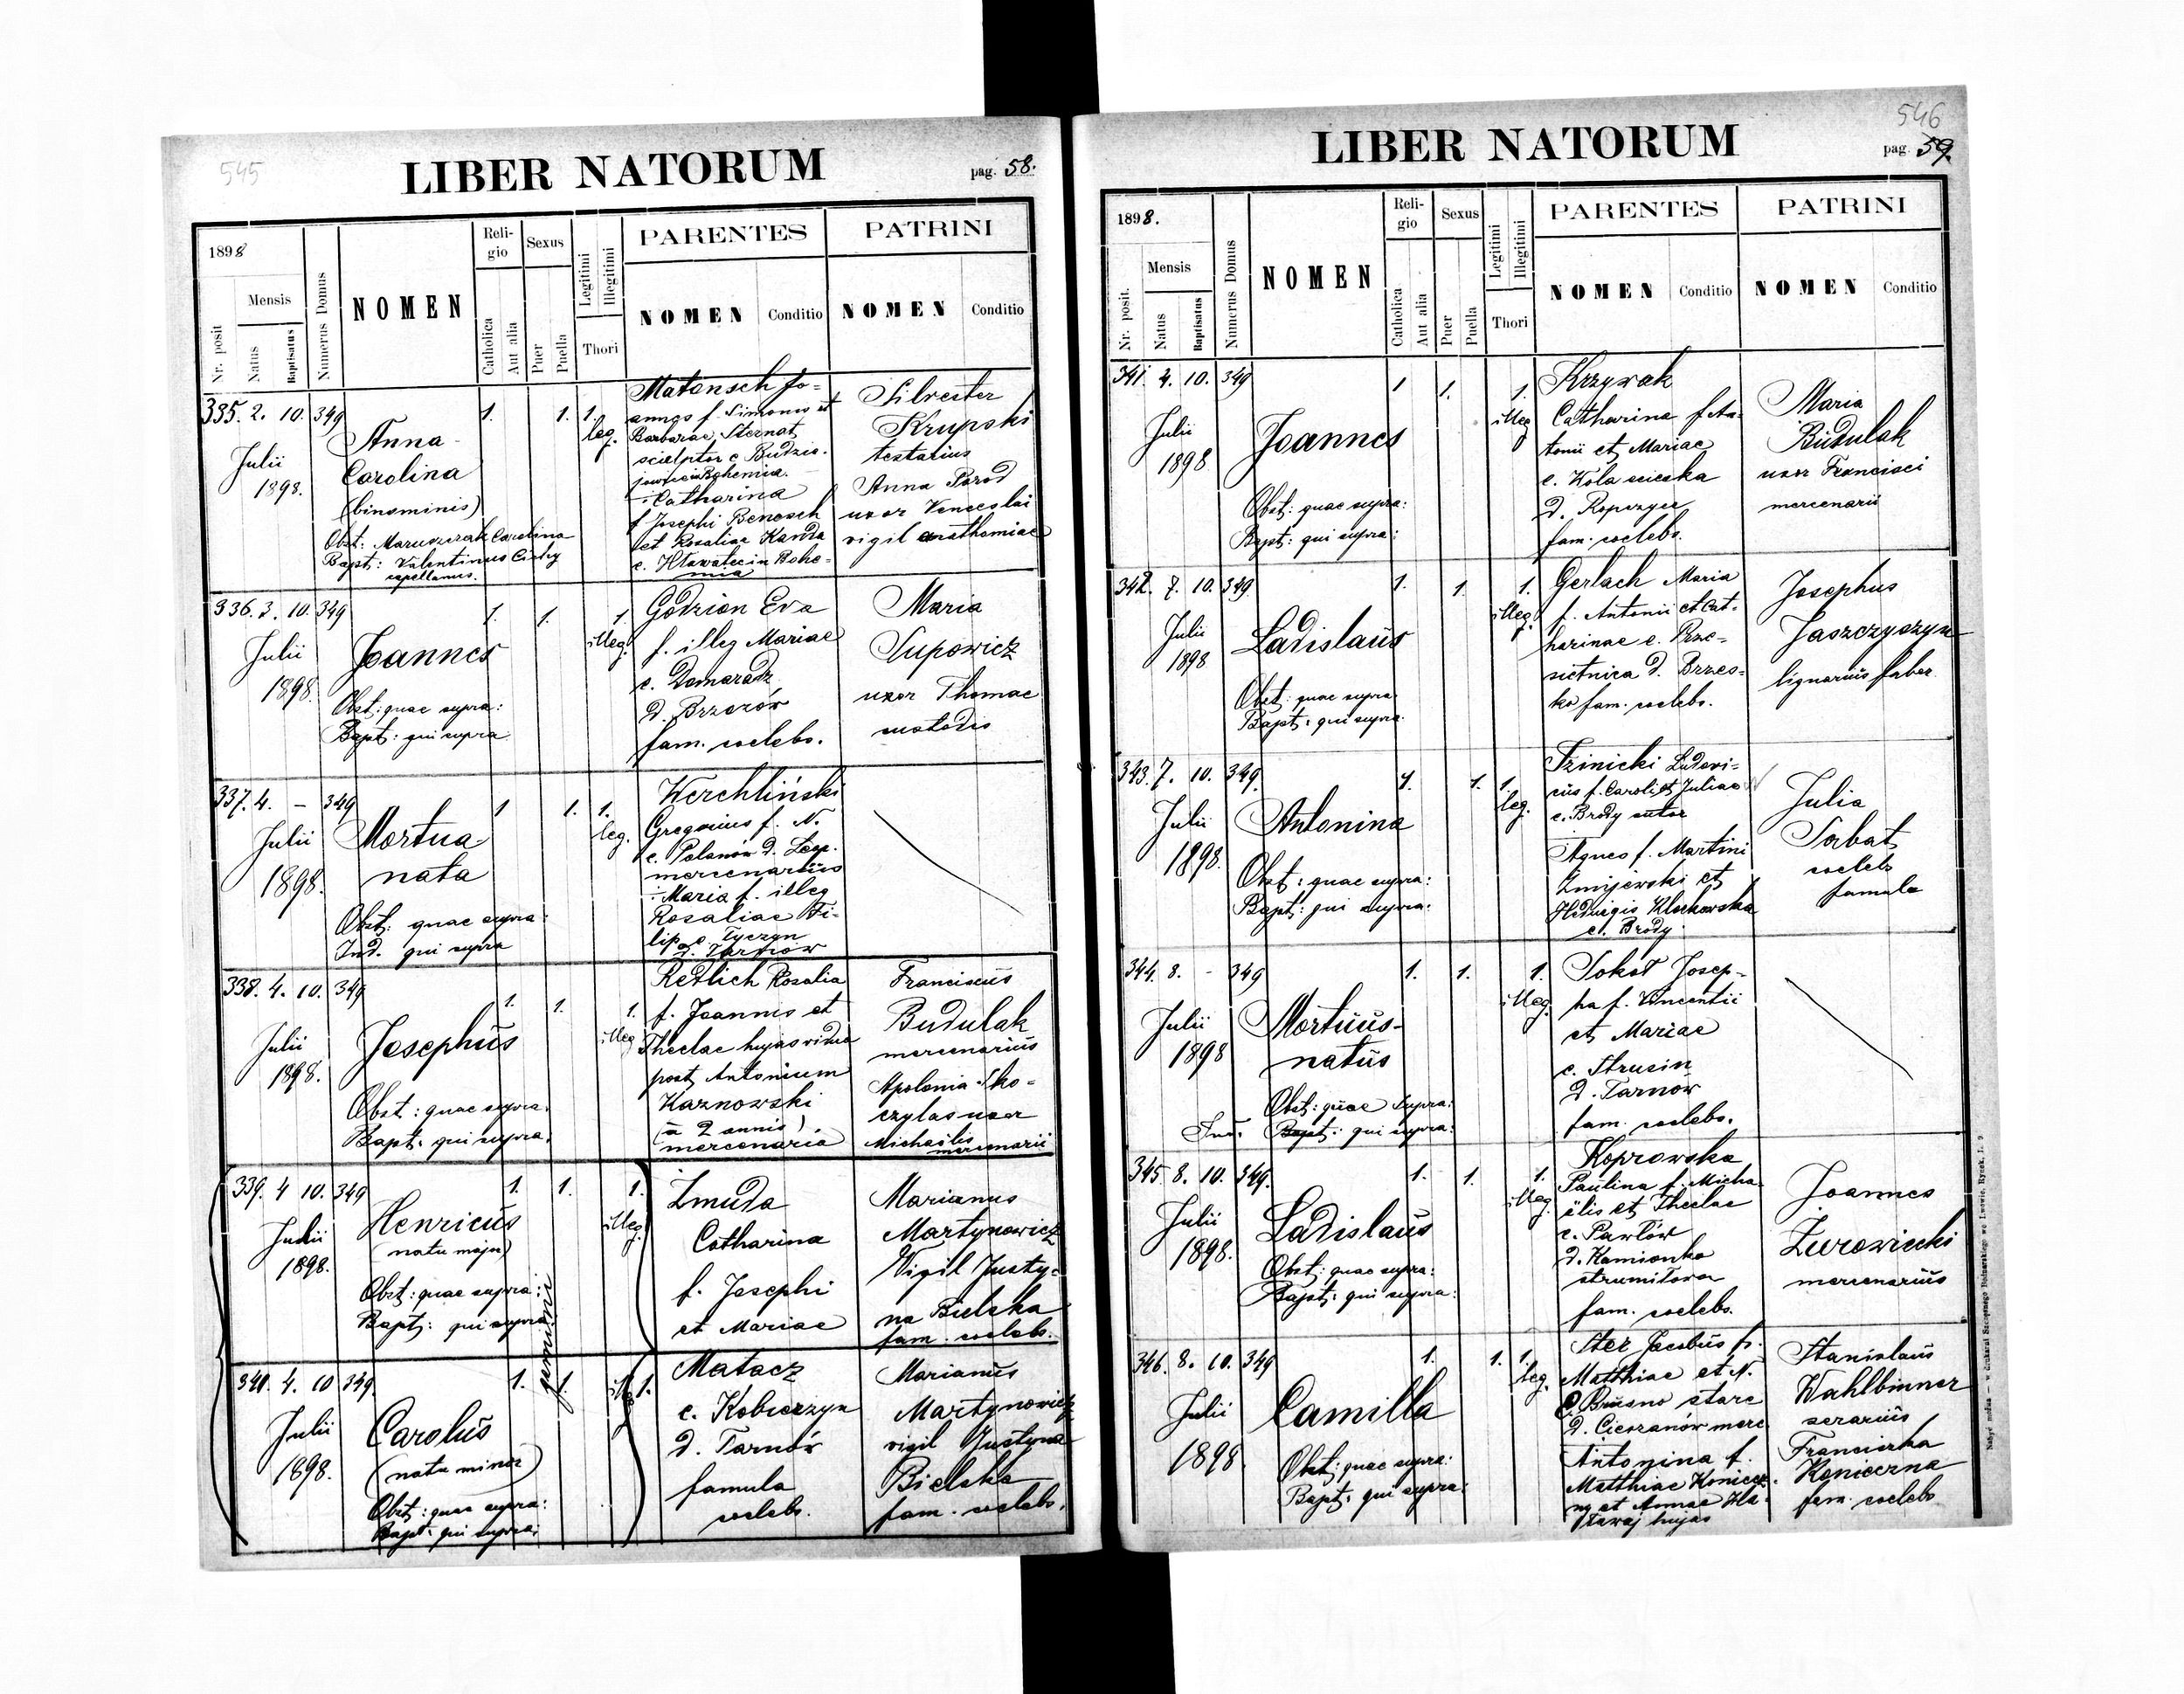 545
LIBER NATORUM
pag. 58.
1898
Nr. posit
Mensis
Natus
Baptisatus
Numerus Domus
NOMEN
Religio
Catholica
Aut alia
Sexus
Puer
Puella
Legitimi
Illegitimi
Thori
PARENTES
NOMEN
Conditio
PATRINI
NOMEN
Conditio
335. 2. 10. 349
Julii
1898.
Anna
Carolina
(binominis)
Obst: Carolina
Bapt: Valentinus Cichy
capellanus.
1. 1. 1.
leg.
Matensch Jo=
annes f. Simonis et
Barbarae Sternat
sculptor e Budzie-
jowice in Bohemia.
Catharina
f Josephi Benesch
et Rosaliae Kanda
e. Hławatec in Bohe=
mia
Silvester
Krupski
testarius
Anna Parod
uxor Venceslai
vigil
336. 3. 10. 349
Julii
1898.
Joannes
Obst: quae supra:
Bapt: qui supra
1. 1. 1.
illeg.
Godzion Eva
f. illeg Mariae
e. Domaradz
d. Brzozów
fam. coelebs.
Maria
Supowicz
uxor Thomae
custodis
337. 4. - 349
Julii
1898.
Mortua
nata
Obst. quae supra:
Ind. qui supra
1 1. 1.
leg.
Werchliński
Gregorius f. N.
e. Polanów d. Leop.
mercenarius
Maria f. illeg
Rosaliae Fi-
lip e. Tyczyn
d. Tarnów
338. 4. 10. 349
Julii
1898.
Josephus
Obst: quae supra.
Bapt: qui supra.
1. 1. 1.
illeg
Retlich Rosalia
f. Joannis et
Theclae hujas vidua
post Antonium
Kaznowski
(a 2 annis)
mercenaria
Franciscus
Budulak
mercenarius
Apolonia Sko=
czylas uxor
Michaelis
mercenarii
339. 4 10. 349
Julii
1898.
Henricus
(natu major)
Obst: quae supra:
Bapt: qui supra
gemini
1. 1. 1.
illeg.
Żmuda
Catharina
f. Josephi
et Mariae
Marianus
Martynowicz
Vigil Justy-
na Bielska
fam. coelebs.
340. 4. 10 349
Julii
1898.
Carolus
(natu minor)
Obst: quae supra:
Bapt: qui supra:
1. 1. 1.
Matacz
e. Kobierzyn
d. Tarnów
famula
coelebs.
Marianus
Martynowicz
vigil Justyna
Bielska
fam. coelebs.
546
LIBER NATORUM
pag. 59.
1898.
Nr. posit.
Mensis
Natus
Baptisatus
Numerus Domus
NOMEN
Religio
Catholica
Aut alia
Sexus
Puer
Puella
Legitimi
Illegitimi
Thori
PARENTES
NOMEN
Conditio
PATRINI
NOMEN
Conditio
341. 4. 10. 349
Julii
1898
Joannes
Obst: quae supra:
Bapt: qui supra:
1 1. 1.
illeg
Krzywak
Catharina f. An-
tonii et Mariae
e. Kola
d. Ropczyce
fam. coelebs.
Maria
Budulak
uxor Francisci
mercenarii
342. 7. 10. 349
Julii
1898
Ladislaus
Obst: quae supra
Bapt: qui supra.
1. 1 1.
illeg.
Gerlach Maria
f. Antonii et Cat-
harinae e. Prze-
sietnica d. Brzes-
ko fam. coelebs.
Josephus
Jaszczyszyn
lignarius faber.
343. 7. 10. 349.
Julii
1898.
Antonina
Obst: quae supra:
Bapt: qui supra:
1. 1. 1.
leg.
Ludovi-
cus f. Caroli et Juliae
e. Brody sutor
Agnes f. Martini
Żmijewski et
Hedwigis Klochowska
e. Brody.
Julia
Sorbat
coelebs
famula
344. 8. - 349
Julii
1898
Mortuus-
natus
Obst: quae supra:
Ind. Bapt: qui supra:
1. 1. 1.
illeg.
Sokoł Josep-
ha f. Vincentii
et Mariae
e. Strusin
d. Tarnów
fam. coelebs.
345 8. 10. 349.
Julii
1898.
Ladislaus
Obst: quae supra:
Bapt: qui supra:
1. 1. 1.
illeg.
Koprowska
Paulina f. Micha
ëlis et Theclae
e. Pawłów
d. Kamionka
strumiłowa
fam. coelebs.
Joannes
Żurowiecki
mercenarius
346. 8. 10. 349
Julii
1898
Camilla
Obst: quae supra:
Bapt: qui supra:
1. 1. 1.
leg.
Ster Jacobus f.
Matthiae et N.
e. Brusno stare
d. Cieszanów merc
Antonina f.
Matthiae Koniecz-
ny et Annae
hujas
Stanislaus
Wahlbinner
serarius
Franciszka
Konieczna
fam. coelebs